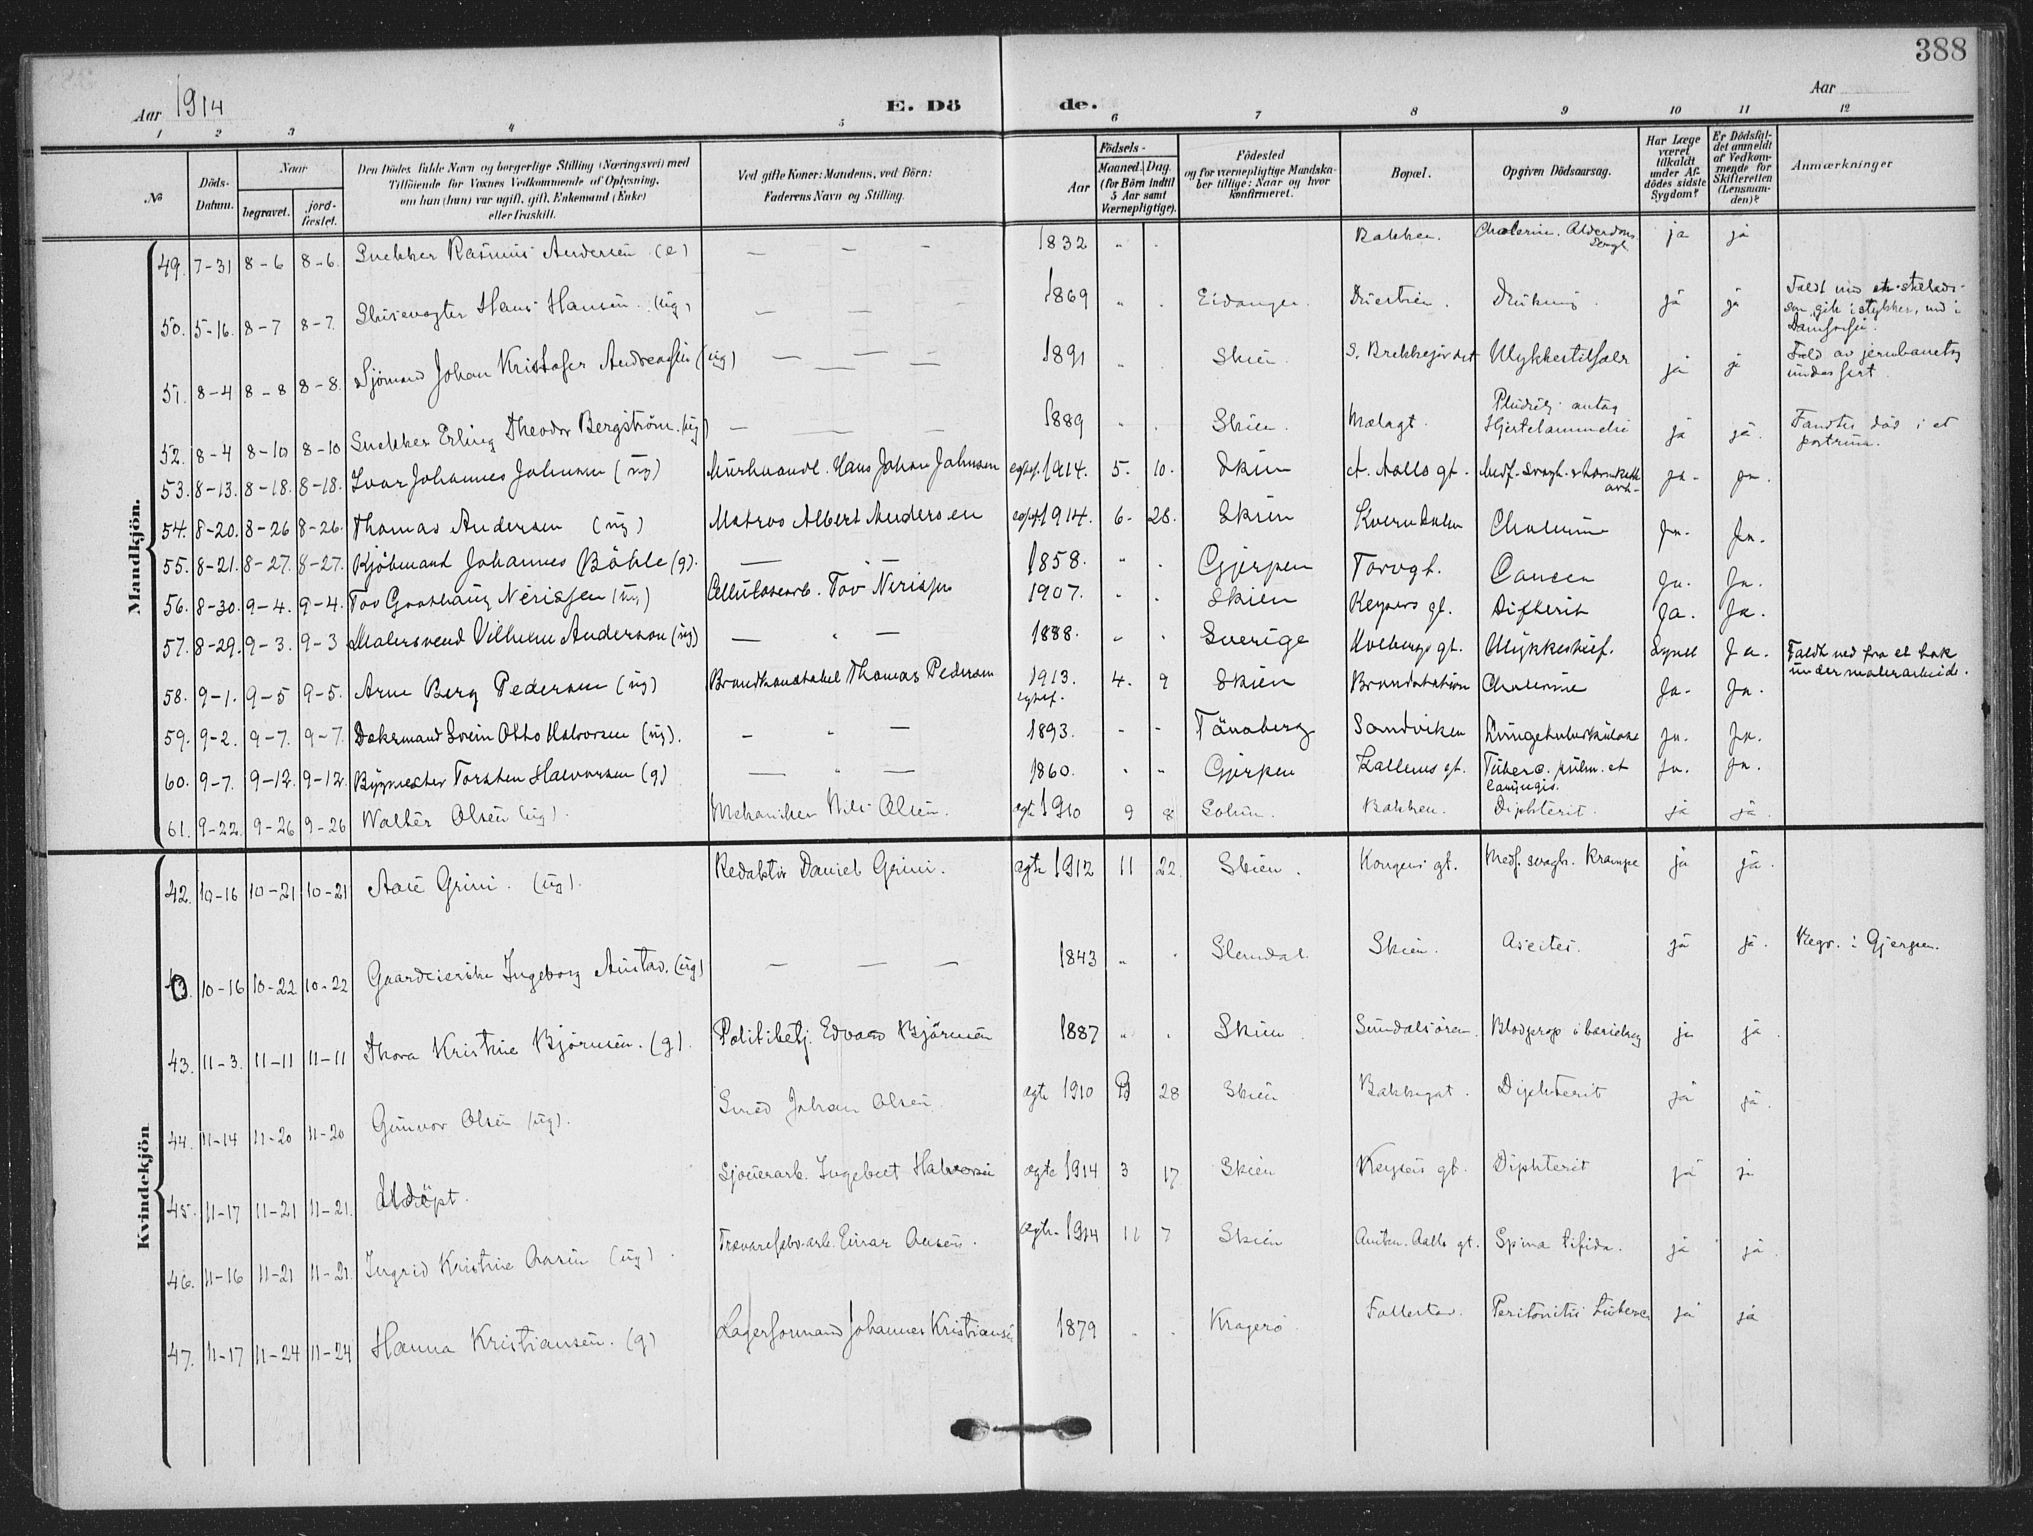 388
Aar 1914
E. Dö de.
Aar
1 2 3 4 5 6 7 8 9 10 11 12
No
Döds-Datum.
Naar
begravet.
jord-fæstet.
Den Dödes fulde Navn og borgerlige Stilling (Næringsvei) med
Tilföiende for Voxnes Vedkommende af Oplysning,
om han (hun) var ugift, gift, Enkemand (Enke)
eller fraskilt.
Ved gifte Koner: Mandens, ved Börn:
Faderens Navn og Stilling.
Aar
Födsels-
Maaned. Dag.
(for Börn indtil
5 Aar samt
Værnepligtige).
Födested
og for værnepligtige Mandska-
ber tillige: Naar og hvor
konfirmeret.
Bopæl.
Opgiven Dödsaarsag.
Har Læge
været
tilkaldt
under Af-
dödes sidste
Sygdom?
Er Dödsfal-
det anmeldt
af Vedkom-
mende for
Skifteretten
(Lensman-
den)?
Anmærkninger
Mandkjön.
49. 7-31 8-6 8-6. Snekker Rasmus Andersen (e) — — — 1832 " . Bakken. Cholerin. Alderdoms ja ja
50. 5-16. 8-7 8-7. Slusevogter Hans Hansen. (ug) — — — 1869 " . Eidanger. ja ja Faldt
som gik i stykker, ned i
51. 8-4 8-8 8-8. Sjömand Johan Kristofer Andreassen (ug) — — — 1891 " . Skien. S. Brekkejordet Ulykkestilfælde ja ja Fald av jernbanetog
under fart.
52. 8-4 8-10 8-10 Snekker Erling Theodor Bergström. (ug) — — — 1889 . . Skien. Mælagt. antag
Hjertelammelse ja ja. Fandtes död i et
portrum.
53. 8-13. 8-18. 8-18. Ivar Johannes Johnsen (ug) Murhaandl. Hans Johan Johnsen egtef. 1914. 5. 10. Skien A. Aalls gt. Medf. svagh. ja. ja.
54. 8-20. 8-26 8-26. Thomas Andersen (ug) Matros Albert Andersen egtef. 1914. 6. 28. Skien Kverndalen Cholerine Ja. Ja.
55. 8-21. 8-27. 8-27. Kjöbmand Johannes Böhle (g). — — 1858. " . Gjerpen Torvgt. Cancer Ja. Ja.
56. 8-30. 9-4. 9-4. Tov Gaathaug Nerisjen (ug) Cellulosearb. Tov Nerisjen 1907. . . Skien Keysers gt. Difterit Ja. Ja.
57. 8-29. 9-3. 9-3 Malersvend Vilhelm Anderson (ug) — " — 1888. " . Sverige Holbergs gt. Ulykkestilf. Synet Ja. Faldt ned fra et tak
under malerarbeide.
58. 9-1. 9-5 9-5. Arne Berg Pedersen (ug) Brandkonstabel Thomas Pedersen 1913. egtef. 4. 9 Skien Brandstation Cholerine Ja. Ja.
59. 9-2. 9-7. 9-7. Dæksmand Svein Otto Halvorsen (ug). — " — 1893. . . Tönsberg Sandviken Lungetuberkulose Ja. Ja.
60. 9-7. 9-12. 9-12. Torsten Halvorsen (g) — " — 1860. . . Gjerpen gt. Tuberc. pulm. et
laryngis. Ja. Ja.
61. 9-22. 9-26 9-26 Walter Olsen (ug). Mekaniker Nils Olsen. egte 1910 9 8 Solum. Bakken. Diphterit. ja ja.
Kvindekjön
42. 10-16 10-21 10-21 Aase Grini. (ug). Redaktör Daniel Grini. egte 1912 11 22. Skien. Kongens gt. Medf. svagh. Krampe ja ja.
10-16 10-22 10-22 Gaardeierske Ingeborg Austad. (ug) — — — 1843 " . Slemdal. Skien. Ascites. ja ja. Begr. i Gjerpen.
43. 11-3. 11-11 11-11 Thora Kristine Björnsen. (g). Politibetj. Edvard Björnsen 1887 " . Skien. Blodprop i ja ja
44. 11-14 11-20 11-20 Gunvor Olsen (ug). Smed Johan Olsen. egte 1910 28 Skien Bakkegat. Diphterit ja ja.
45. 11-17 11-21 11-21. Udöpt. Sjouerarb. Ingebret Halvorsen egte 1914 3 17 Skien Keysers gt. Diphterit ja ja
46. 11-16 11-21 11-21. Ingrid Kristine Aasen (ug). Trævarefabr.arb. Einar Aasen. egte 1914 11 7 Skien Aalls gt. Spina bifida. ja ja.
47. 11-17 11-24 11-24 Hanna Kristiansen. (g) Lagerformand Johannes Kristiansen 1879 . . Kragerö Follestad. Peritonitis tuberc. ja ja